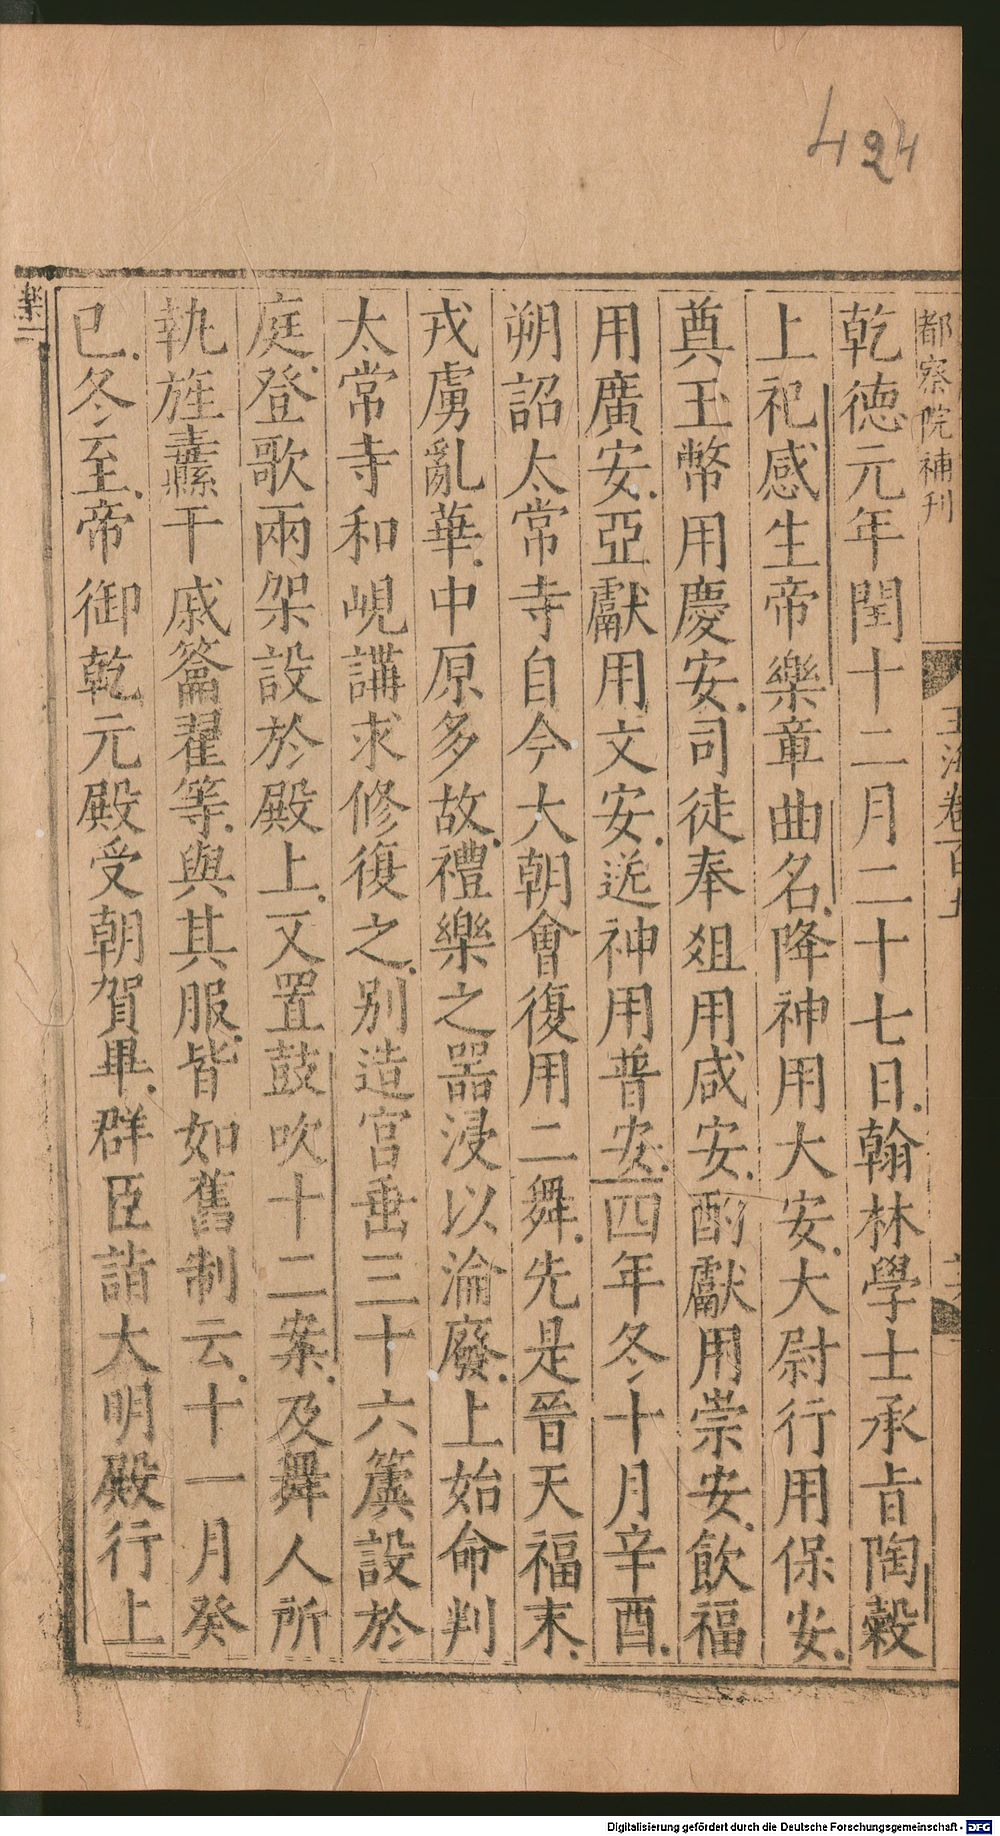 424
都察院補刊
玉海卷百五
乾德元年閏十二月二十七日翰林學士承旨陶穀
上祀感生帝樂章曲名降神用大安大尉行用保安
奠玉幣用慶安司徒奉俎用咸安酌獻用崇安飲福
用廣安亞獻用文安送神用普安四年冬十月辛酉
朔詔太常寺自今大朝會復用二舞先是晉天福末
戎虜亂華中原多故禮樂之器浸以淪廢上始命判
太常寺和峴講求修復之别造宮垂三十六簴設於
庭登歌兩架設於殿上又置鼓吹十二案及舞人所
執旌纛干戚籥翟等與其服皆如舊制云十一月癸
已冬至帝御乾元殿受朝賀畢群臣詣大明殿行上
樂一
Digitalisierung gefördert durch die Deutsche Forschungsgemeinschaft - DFG